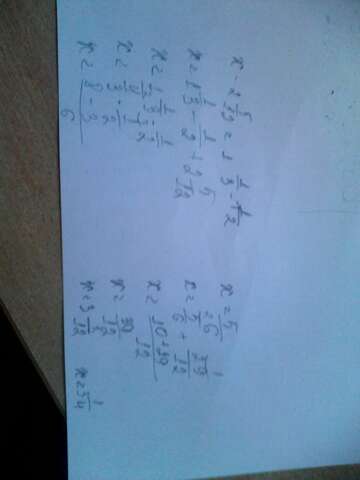 x - 2 5/12 = 1 1/3 - 1/2
x = 1 1/3 - 1/2 + 2 5/12
x = 1 1/3 - 1/2
x = 4/3 - 1/2
x = (8 - 3)/6
x = 5/6
x = 5/6 + 29/12
x = (10 + 29)/12
x = 39/12
x = 3 3/12 x = 3 1/4